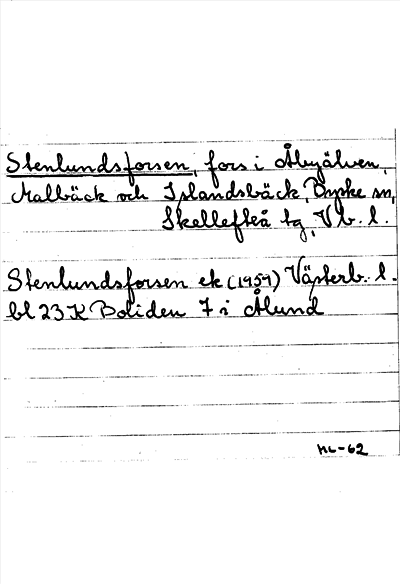 Stenlundsforsen, fors i Åbyälven,
Malbäck och Islandsbäck, Byske sn,
Skellefteå tg, Vb. l.
Stenlundsforsen ek (1959) Västerb. l.
bl 23 K Boliden 7 i Ålund
HL-62